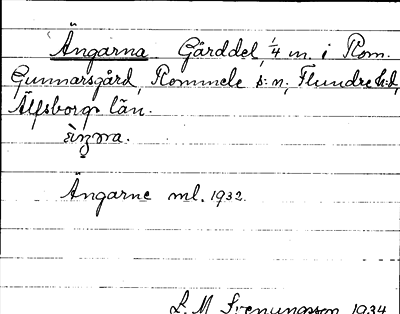 Ängarna Gärddel, 1/4 m. i Rom.
Gunnarsgård, Rommele s:n, Flundre h:d,
Älfsborgs län.
Ängarne ml. 1932.
L. M. Svenungsson 1934